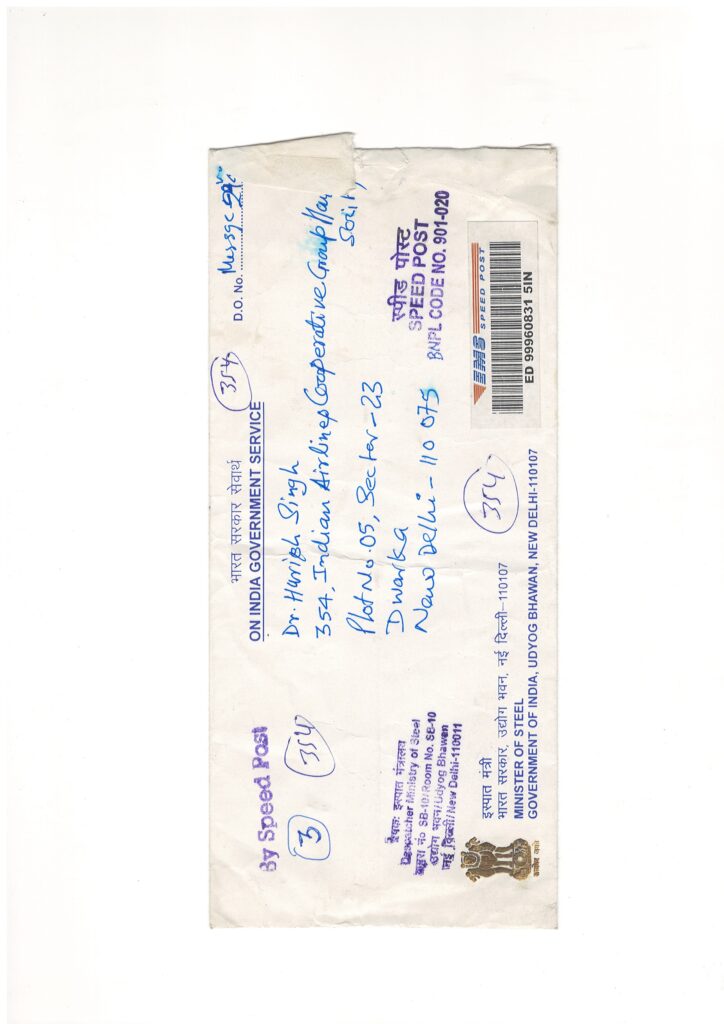 By Speed Post
3
354
भारत सरकार सेवार्थ
ON INDIA GOVERNMENT SERVICE
354
D.O. No.
Dr. Harish Singh
354, Indian Airlines Cooperative Group
Plot No. 05, Sector-23
Dwarka
New Delhi-110 075
प्रेषक: इस्पात मंत्रालय
Despatcher Ministry of Steel
कमरा नं० SB-10/Room No. SB-10
उद्योग भवन/Udyog Bhawan
नई दिल्ली/New Delhi-110011
स्पीड पोस्ट
SPEED POST
BNPL CODE NO. 901-020
EMS SPEED POST
ED 99960831 5IN
354
इस्पात मंत्री
भारत सरकार, उद्योग भवन, नई दिल्ली-110107
MINISTER OF STEEL
GOVERNMENT OF INDIA, UDYOG BHAWAN, NEW DELHI-110107
सत्यमेव जयते